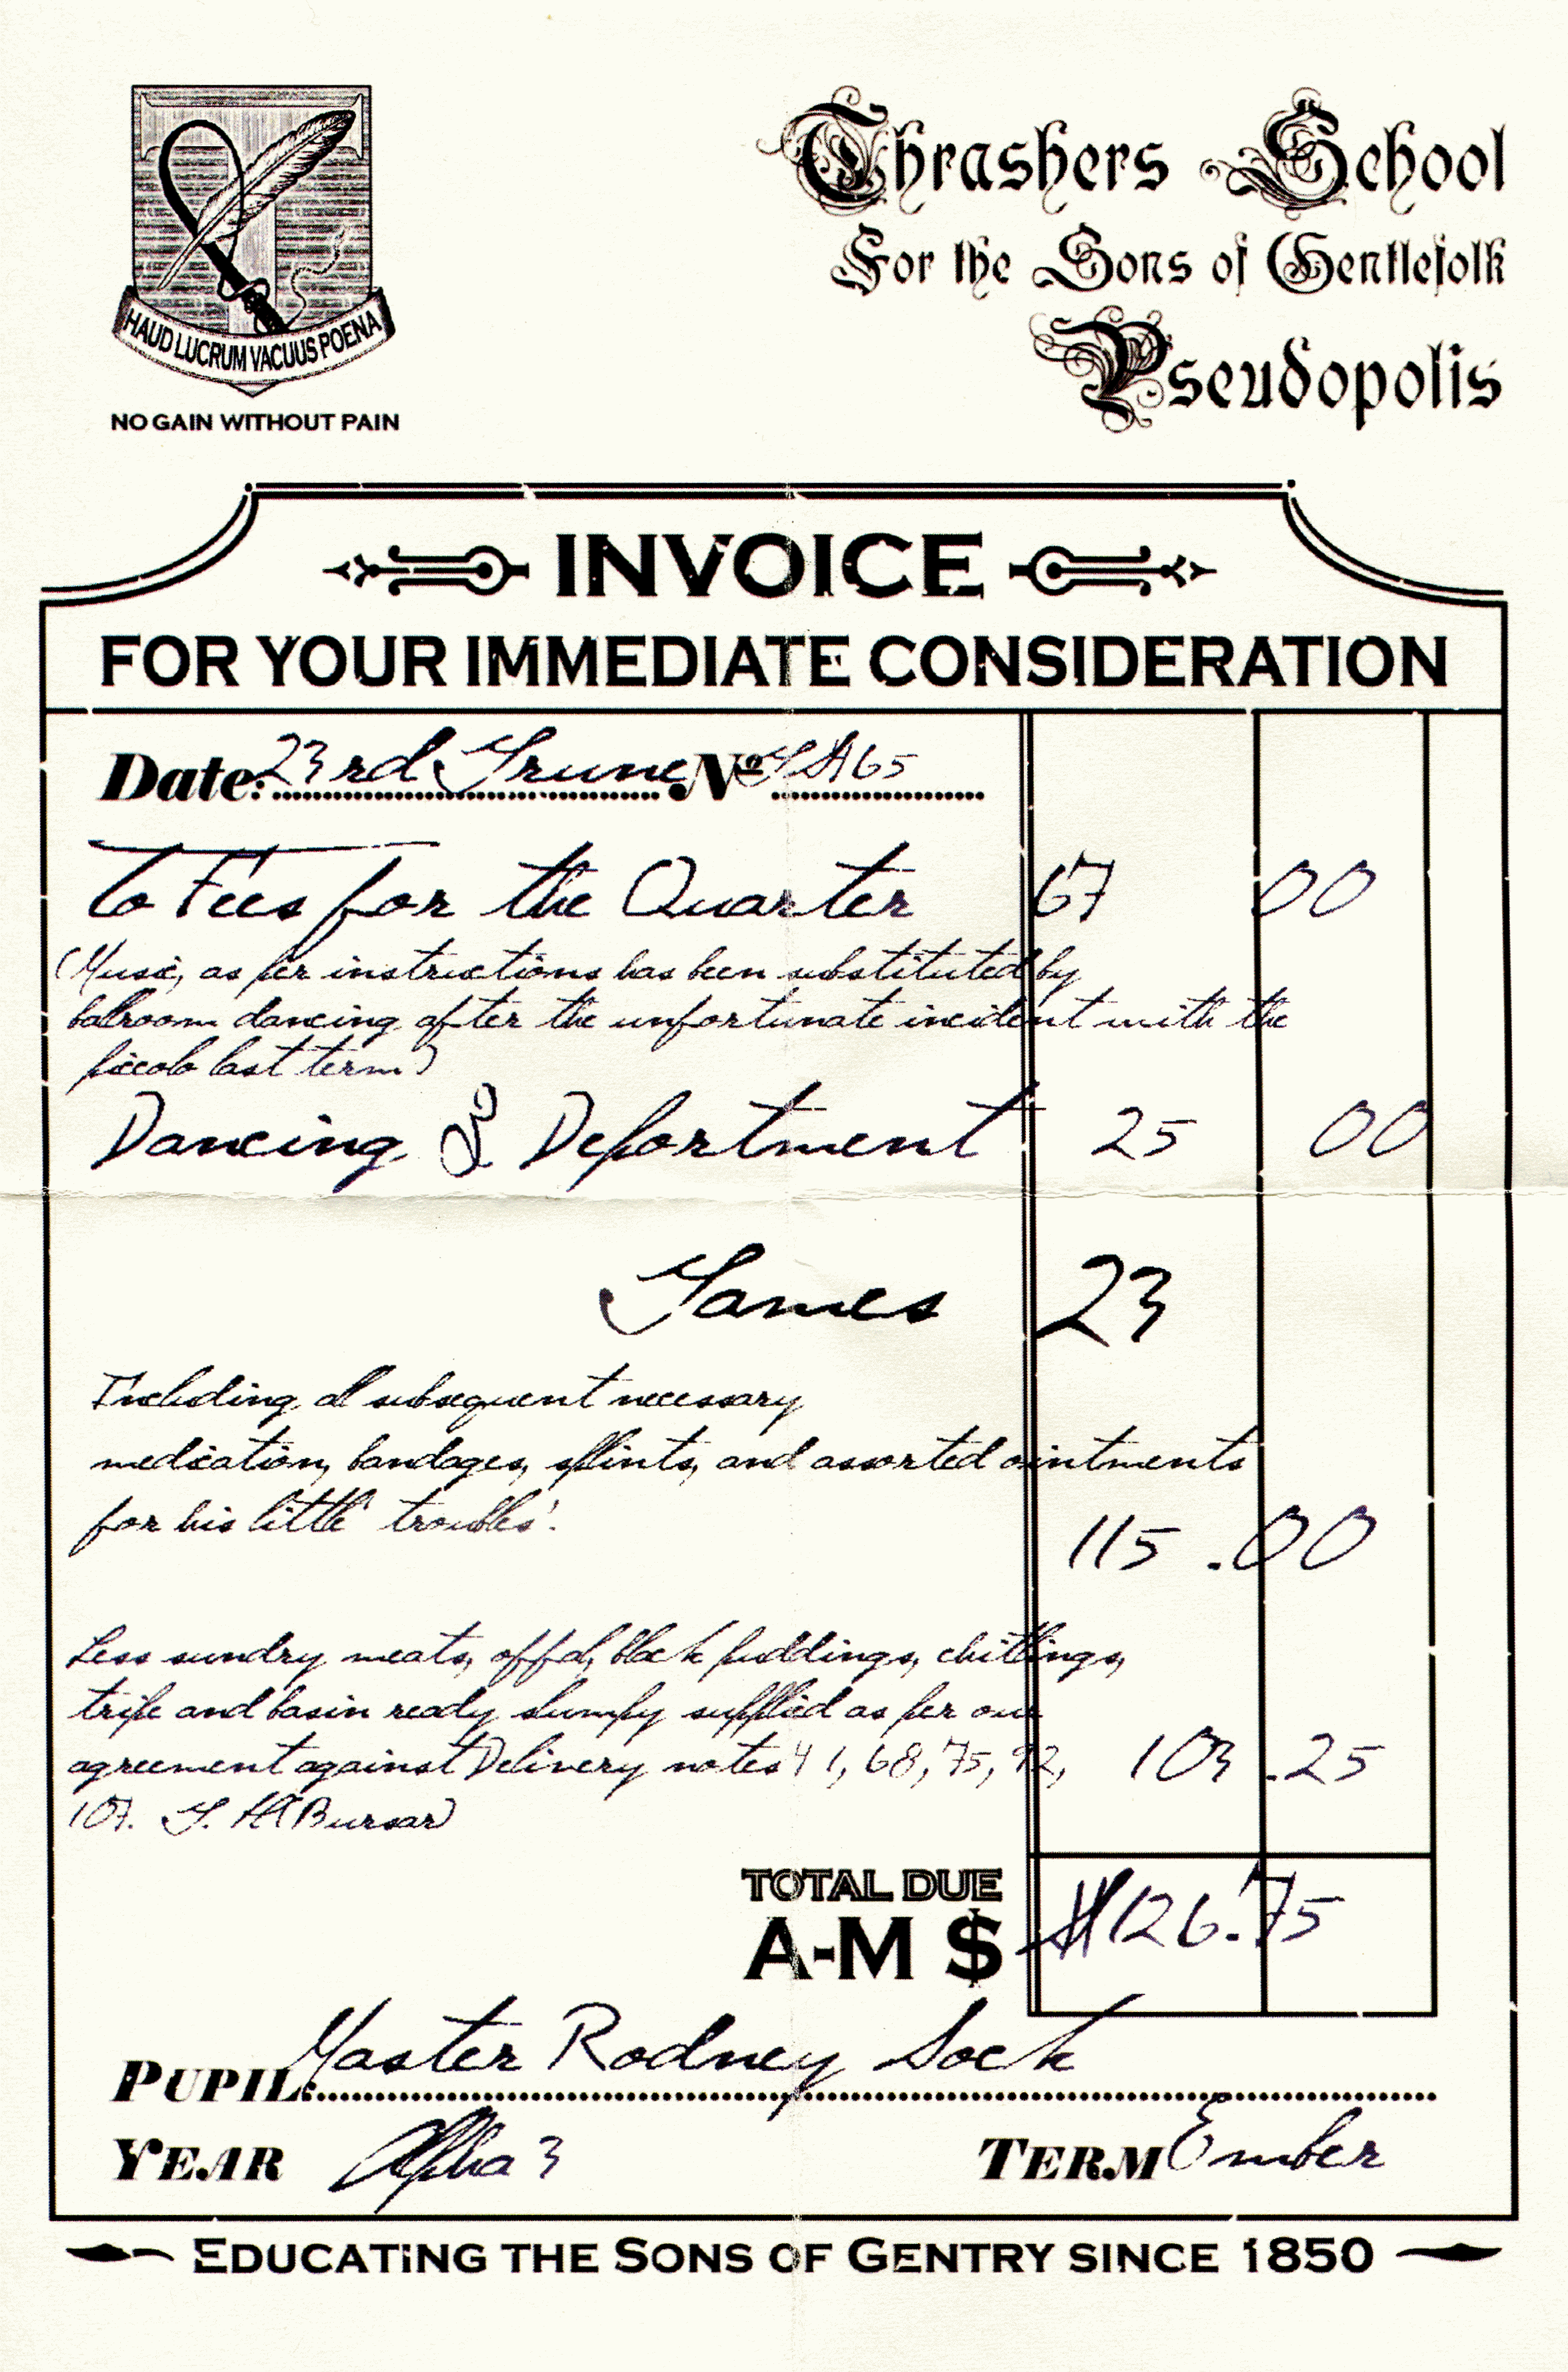 Thrashers School
For the Sons of Gentlefolk
Pseudopolis
HAUD LUCRUM VACUUS POENA
NO GAIN WITHOUT PAIN
INVOICE
FOR YOUR IMMEDIATE CONSIDERATION
Date: 23rd Grune Nº GA165
To Fees for the Quarter 67 00
(Music, as per instructions has been substituted by
balroom dancing after the unfortunate incident with the
piccolo last term)
Dancing & Deportment 25 00
Games 23
Including all subsequent necessary
medication, bandages, splints, and assorted ointments
for his little 'troubles'.
115.00
Less sundry meats, offal, black puddings, chitlings,
tripe and basin ready slumpy supplied as per our
agreement against Delivery notes 41, 68, 75, 92, 103.25
107. Bursar)
TOTAL DUE
A-M $ $126.75
PUPIL: Master Rodney Sock
YEAR Alpha 3 TERM Ember
EDUCATING THE SONS OF GENTRY SINCE 1850